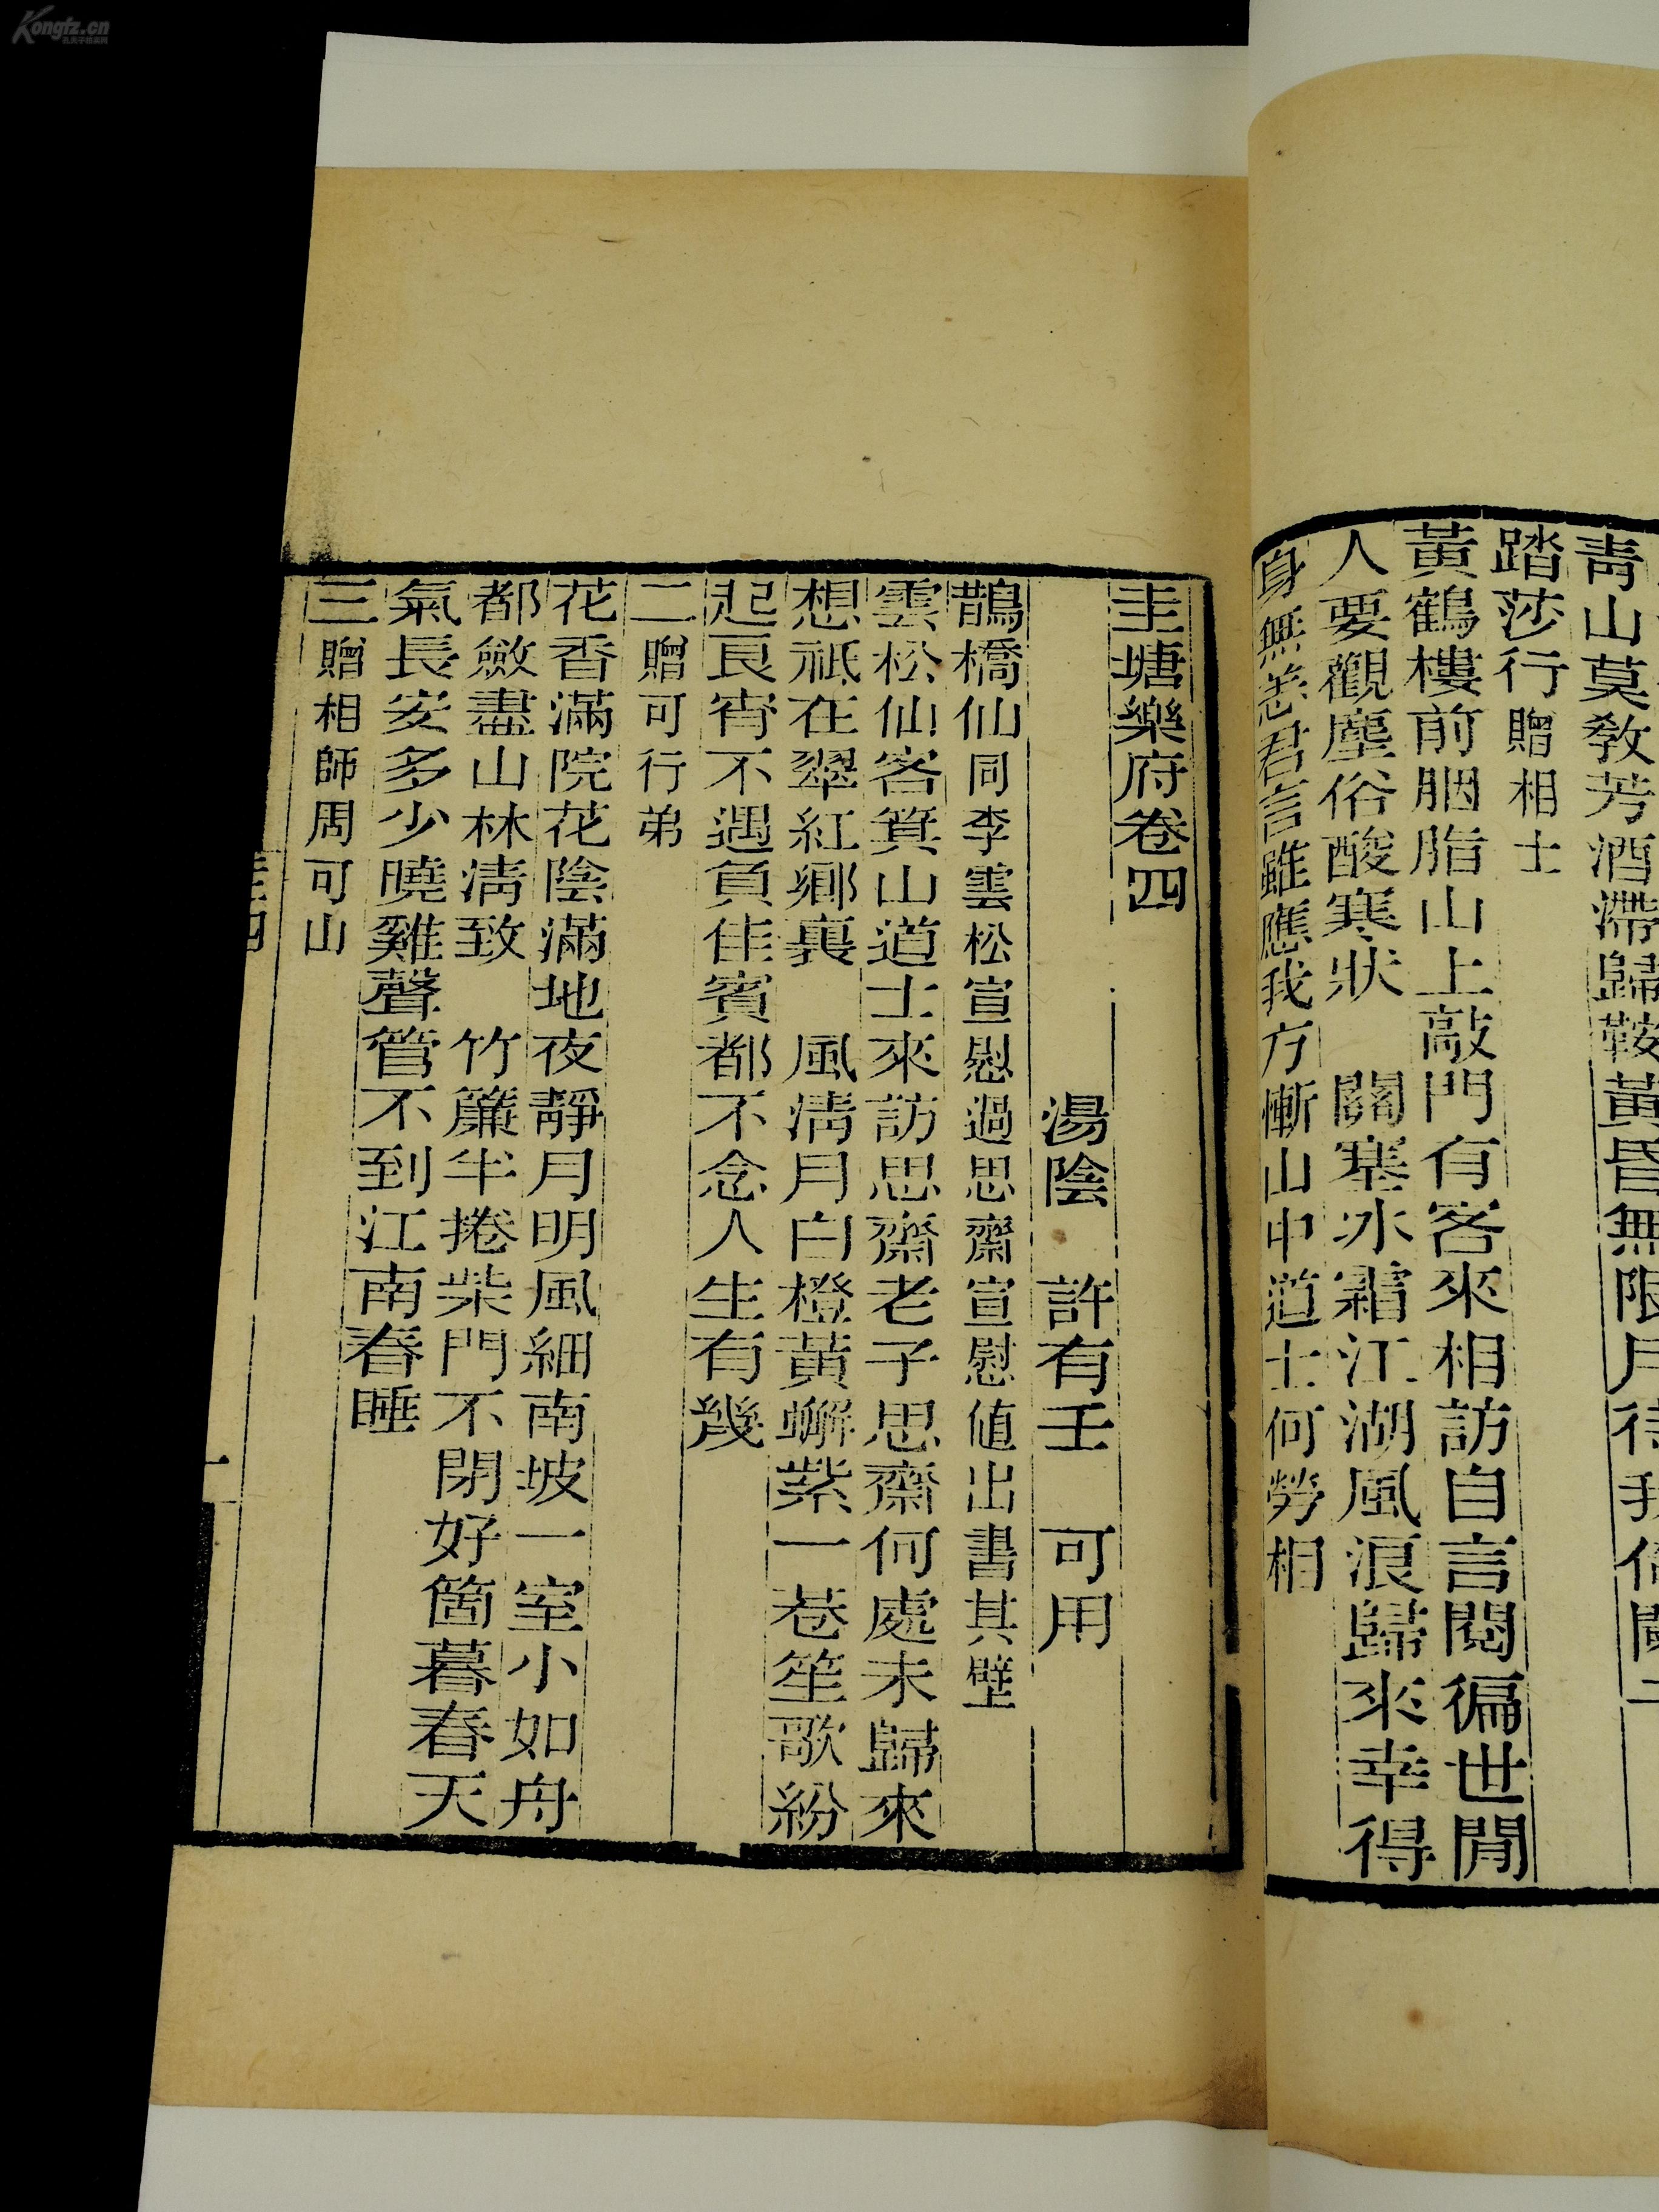 青山莫敎芳酒滯歸鞍黃昏無限月待我倚闌
踏莎行贈相士
黃鶴樓前胭脂山上敲門有客來相訪自言閱徧世閒
人要觀塵俗酸寒狀 關塞冰霜江湖風浪歸來幸得
身無恙君言雖應我方慚山中道士何勞相
圭塘樂府卷四
湯陰 許有壬 可用
鵲橋仙同李雲松宣慰過思齋宣慰値出書其壁
雲松仙客箕山道士來訪思齋老子思齋何處未歸來
想祗在翠紅鄕裏 風淸月白橙黃蠏紫一巷笙歌紛
起良宵不遇負佳賓都不念人生有幾
二贈可行弟
花香滿院花陰滿地夜靜月明風細南坡一室小如舟
都斂盡山林淸致 竹簾半捲柴門不閉好箇暮春天
氣長安多少曉雞聲管不到江南春睡
三贈相師周可山
圭四
一
Kongfz.cn